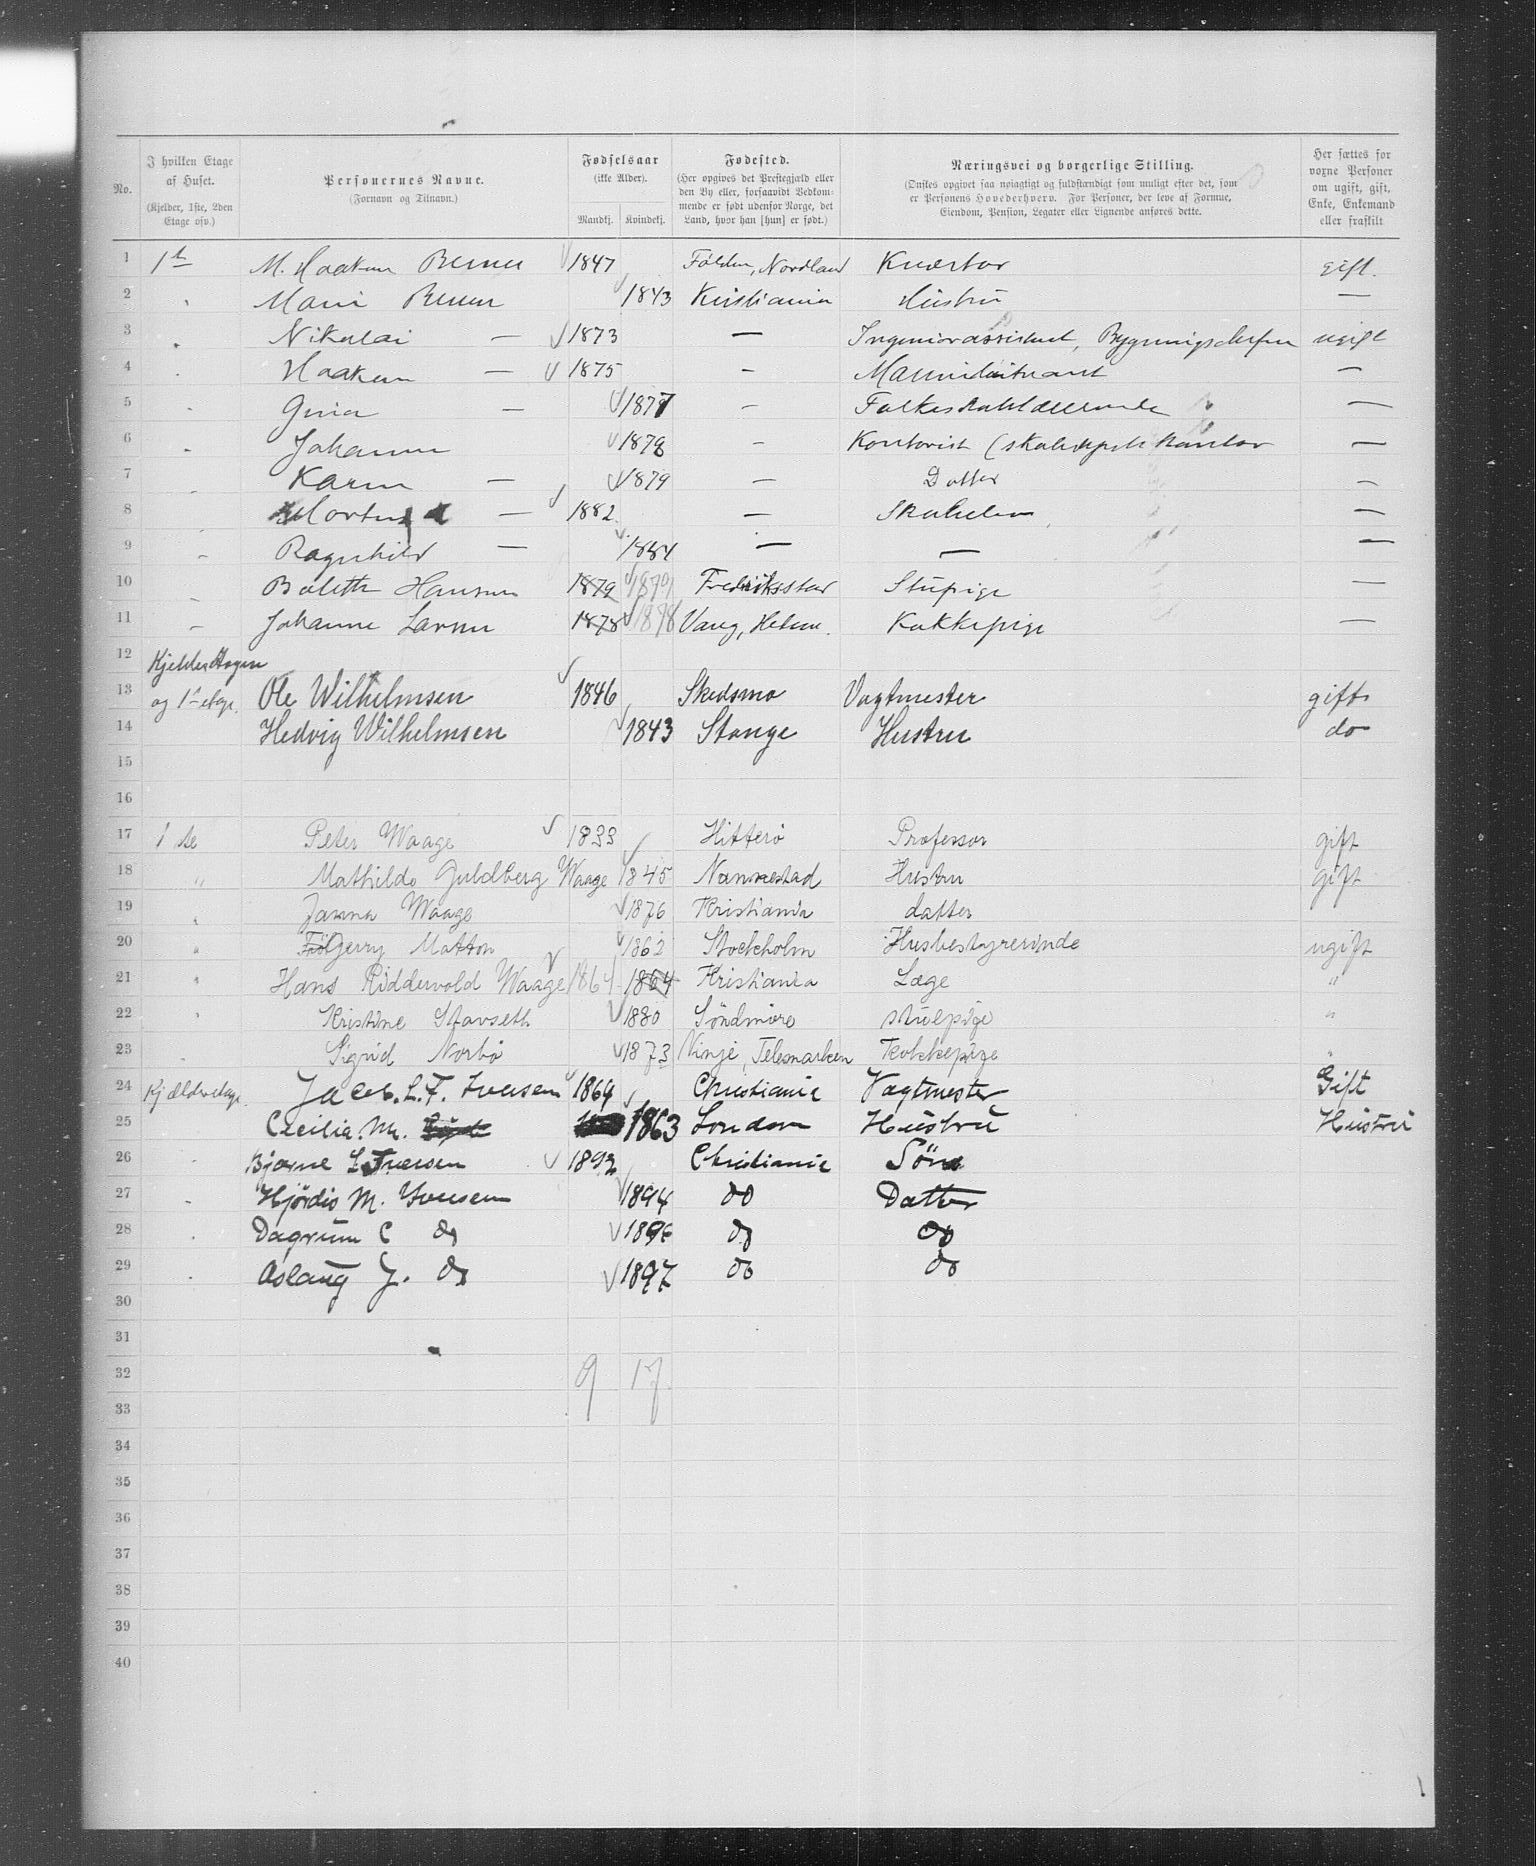 No.
I hvilken Etage af Huset.
(Kjelder, 1ste, 2den Etage osv.)
Personernes Navne.
(Fornavn og Tilnavn.)
Fødselsaar
(ikke Alder).
Mandkj. Kvindekj.
Fødested.
(Her opgives det Prestegjæld eller den By eller, forsaavidt Vedkommende er født udenfor Norge, det Land, hvor han [hun] er født.)
Næringsvei og borgerlige Stilling.
(Ønskes opgivet saa nøiagtigt og fuldstændigt som muligt efter det, som er Personens Hovederhverv. For Personer, der leve af Formue, Eiendom, Pension, Legater eller Lignende anføres dette.
Her sættes for voxne Personer om ugift, gift, Enke, Enkemand eller fraskilt
1 M. Haakon Berner 1847 Folden, Nordland Kvæstor gift.
2 Marie Berner 1843 Kristiania Hustru —
3 Nikolai — 1873 — Ingeniørassistent, ugift
4 Haakon — 1875 — —
5 Gina — 1877 — —
6 Johanne 1878 — Kontorist —
7 Karen — 1879 — Datter —
8 Morten — 1882 — Skoleelev —
9 Ragnhild — 1884 — — —
10 Bolette Hansen 1879 1879 Fredriksstad Stupige —
11 Johanne Larsen 1878 1878 Vang, Hedem. Kokkepige —
12 Kjelder Etagen
13 og 1ste etage. Ole Wilhelmsen 1846 Skedsmo Vagtmester gift
14 Hedvig Wilhelmsen 1843 Stange Hustru do
15
16
17 1 ste Peter Waage 1833 Hitterø Professor gift
18 " Mathilde Guldberg Waage 1845 Nannestad Hustru gift
19 " Janna Waage 1876 Kristiania datter
20 " Jenny 1862 Stockholm Husbestyrerinde ugift
21 " Hans Riddervold Waage 1864 1864 Kristiania Læge "
22 " Kristine Stavseth 1880 Söndmöre stuepige "
23 " Sigrid Norbö 1873 Vinje, Telemarken Kokkepige "
24 Kjælderetage. Jacob. L. F. Iversen 1864 Christiania Vagtmester Gift
25 Cecilia. M. 1863 London Hustru Hustru
26 Bjarne L Iversen 1892 Christiania Sön
27 Hjördis M. Iversen 1894 do Datter
28 Dagrun C do 1896 do do
29 Aslaug J. do 1897 do do
30
31
32 9 17
33
34
35
36
37
38
39
40